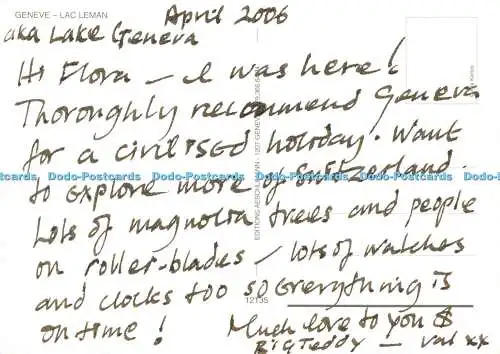 GENEVE – LAC LEMAN
April 2006
aka Lake Geneva
Hi Flora — I was here!
Thoroughly recommend Geneva
for a civilised holiday. Want
to explore more of Switzerland.
Lots of magnolia trees and people
on roller-blades — lots of watches
and clocks too so everything is
on time!
Much love to you &
Big Teddy — Val xx
12135
Dodo-Postcards Dodo-Postcards Dodo-Postcards Dodo-Postcards Dodo-Postcards